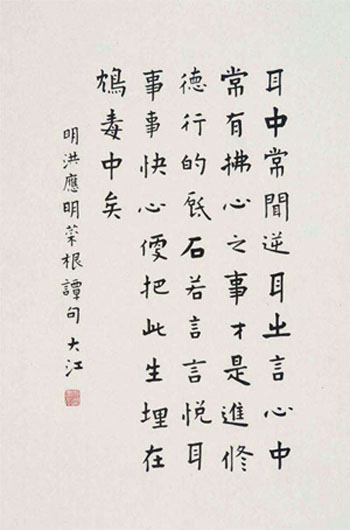 耳中常聞逆耳之言心中
常有拂心之事才是進修
德行的砥石若言言悅耳
事事快心便把此生埋在
鴆毒中矣
明洪應明菜根譚句 大江